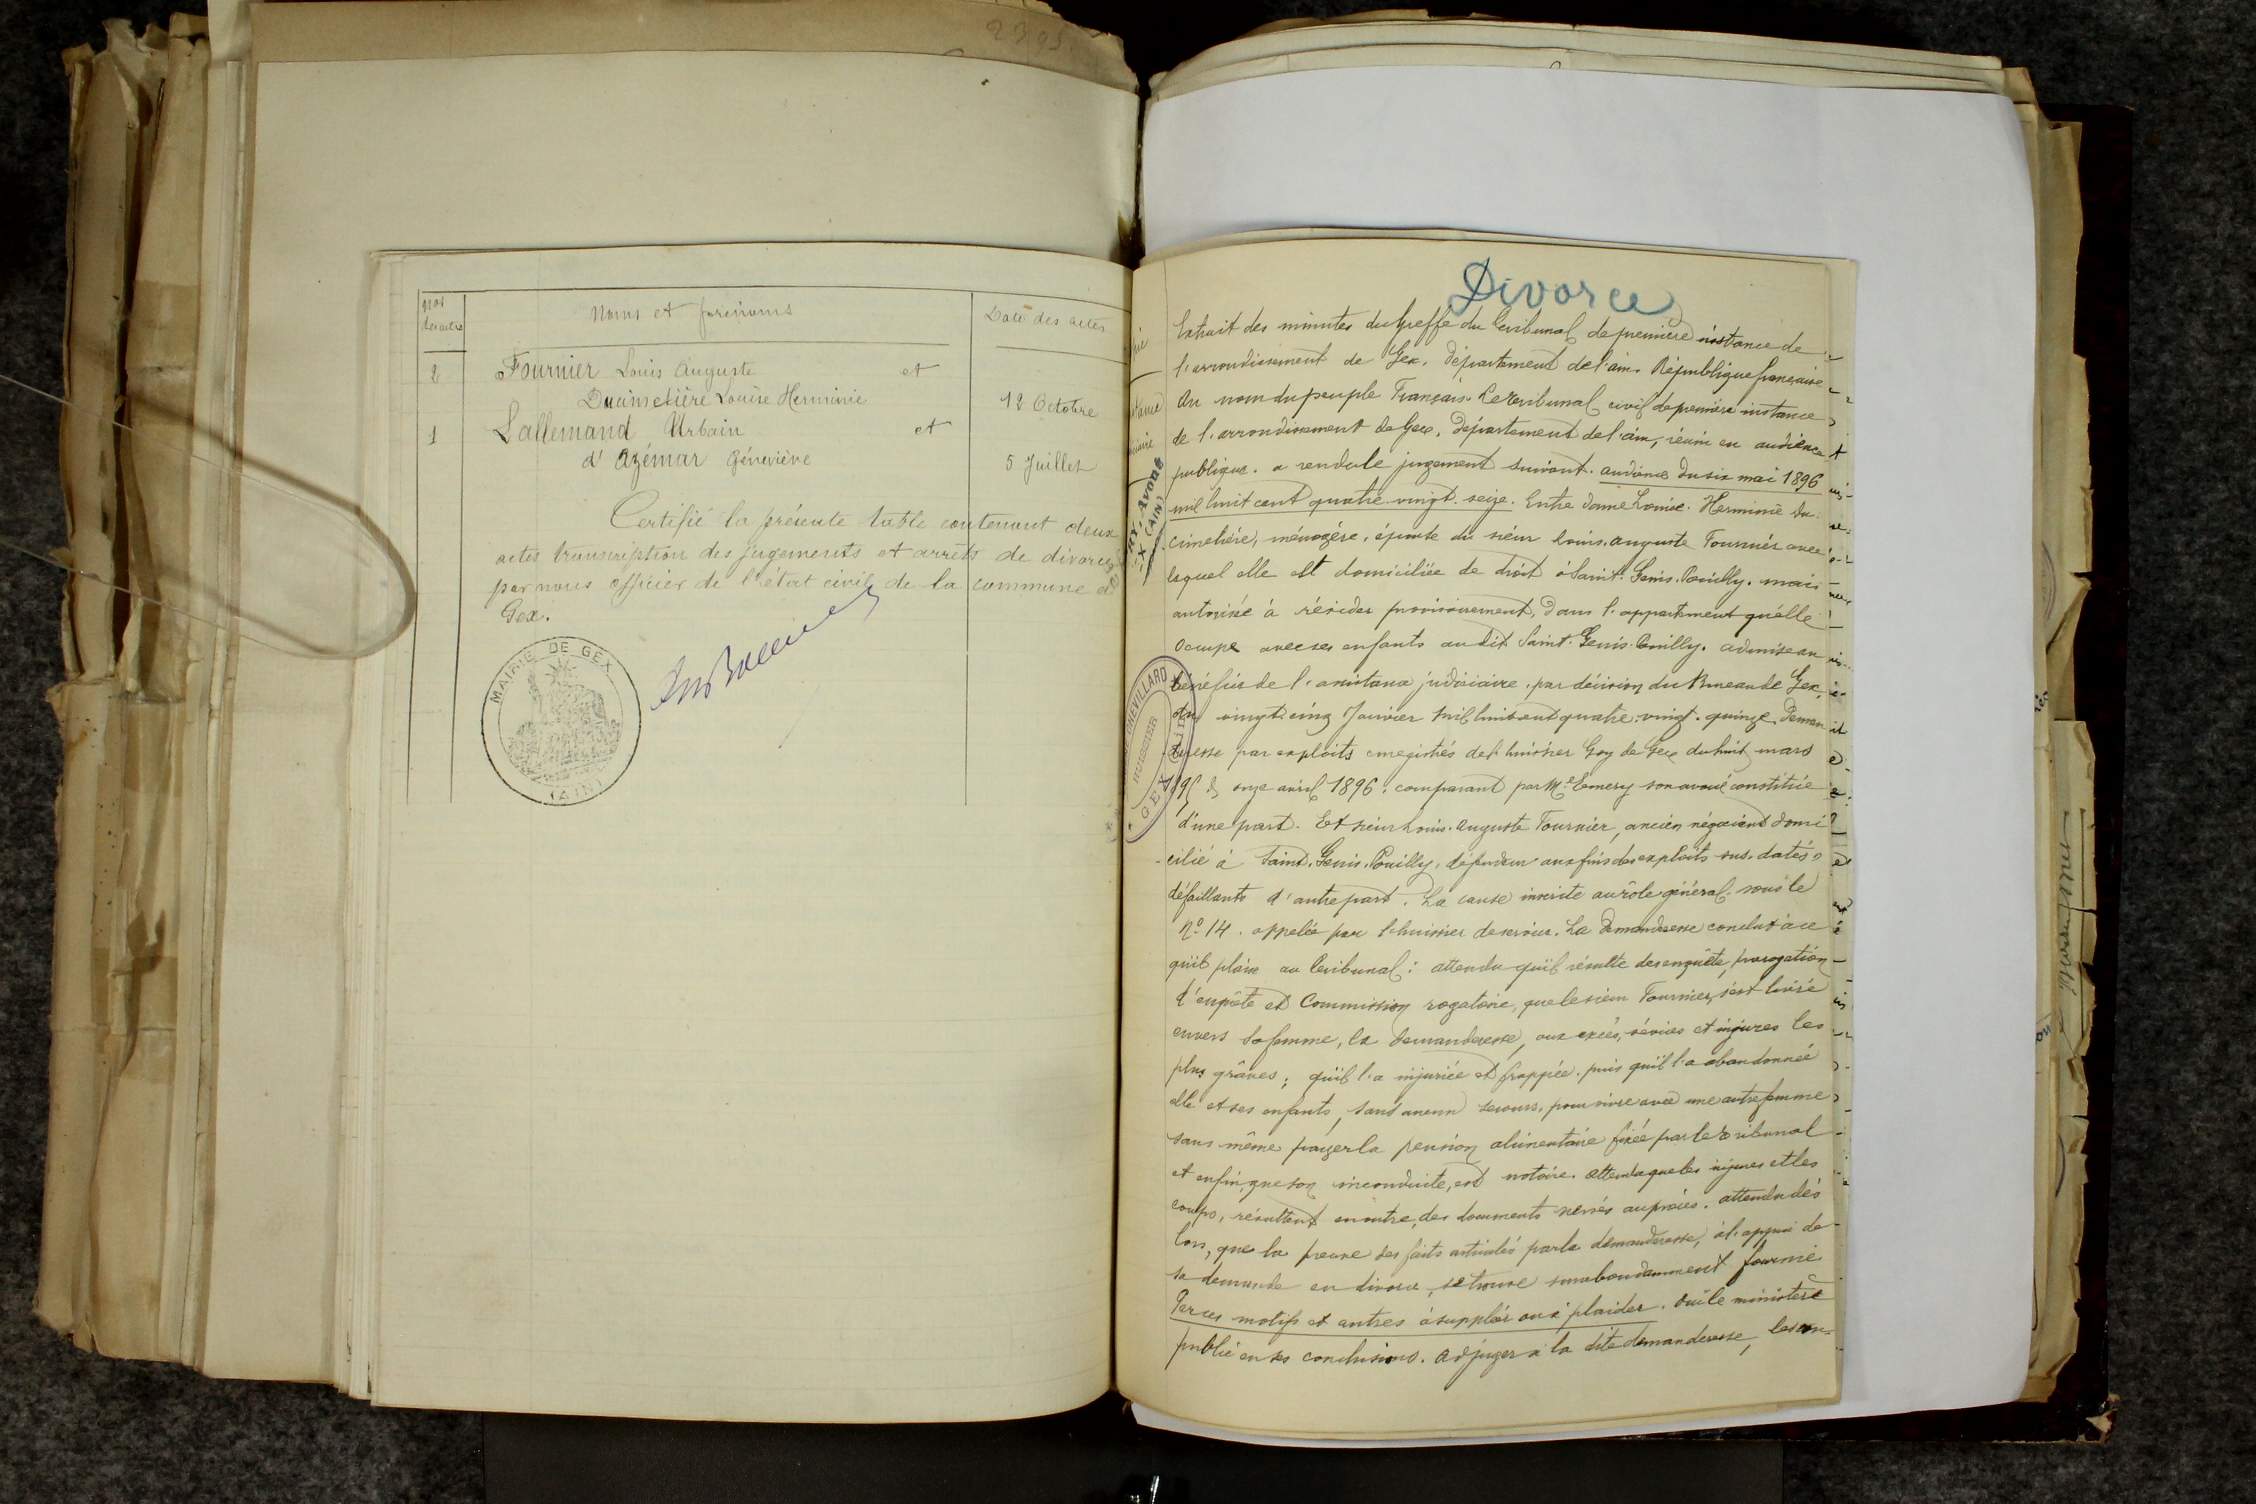 2395
Nos des actes
Noms et prénoms
Date des actes
2
Fournier Louis Auguste et
Ducimetière Louise Herminie
12 Octobre
1
Lallemand Urbain et
d'Azémar Géneviève
5 Juillet
Certifié la présente table contenant deux
actes transcription des jugements et arrêts de divorce
par nous officier de l'état civil de la commune de
Gex.
MAIRIE DE GEX
(AIN)
Divorce
Extrait des minutes du Greffe du Tribunal de première instance de
l'arrondissement de Gex. département de l'ain. République française
Au nom du peuple Français. Le Tribunal civil de première instance
de l'arrondissement de Gex, département de l'ain, réuni en audience
publique. a rendu le jugement suivant. audience du six mai 1896
mil huit cent quatre-vingt-seize. Entre dame Louise-Herminie Du-
cimetière, ménagère, épouse du sieur Louis-auguste Fournier avec
lequel elle est domiciliée de droit à Saint-Genis-Pouilly. mais
autorisée à résider provisoirement, dans l'appartement qu'elle
occupe avec ses enfants au dit Saint-Genis-Pouilly. admise au
bénéfice de l'assistance judiciaire, par décision du Bureau de Gex,
du vingt-cinq Janvier mil huit cent quatre-vingt-quinze. Deman
deresse par exploits enregistrés de l'huissier Goy de Gex du huit mars
95 & onze avril 1896, comparant par Me Emery son avoué constitué
d'une part. Et sieur Louis-auguste Fournier, ancien négociant domi
cilié à Saint-Genis-Pouilly, défendeur aux fins des exploits sus-datés,
défaillants d'autre part. La cause inscrite au rôle général sous le
No 14. appelée par l'huissier de service. La demanderesse conclut à ce
qu'il plaise au Tribunal: attendu qu'il résulte des enquête, prorogation
d'enquête et Commission rogatoire, que le sieur Fournier, s'est livré
envers sa femme, la demanderesse, aux excès, sévices et injures les
plus grâves; qu'il l'a injuriée et frappée. puis qu'il l'a abandonnée
elle et ses enfants, sans aucun secours, pour vivre avec une autre femme
sans même payer la pension alimentaire fixée par le Tribunal
et enfin, que son inconduite, est notoire. attendu que les injures et les
coups, résultent en outre, des documents versés au procès. attendu dès
lors, que la preuve des faits articulés par la demanderesse, à l'appui de
sa demande en divorce, se trouve surabondamment fournie
Par ces motifs et autres à suppléer ou à plaider. Ouï le ministère
public en ses conclusions. adjuger à la dite demanderesse, les con-
CHEVILLARD
HUISSIER
GEX (AIN)
ERY, Avoué
EX (AIN)